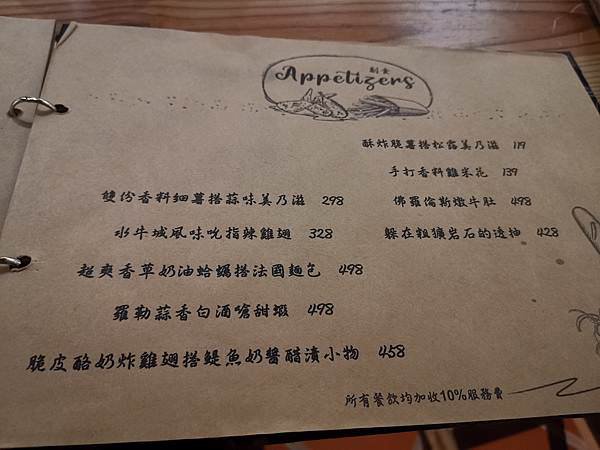 副食
Appetizers
酥炸脆薯搭松露美乃滋 119
手打香料雞米花 139
雙份香料細薯搭蒜味美乃滋 298
佛羅倫斯燉牛肚 498
水牛城風味吮指辣雞翅 328
躲在粗獷岩石的透抽 428
超爽香草奶油蛤蠣搭法國麵包 498
羅勒蒜香白酒嗆甜蝦 498
脆皮酪奶炸雞翅搭鯷魚奶醬醋漬小物 458
所有餐飲均加收10%服務費